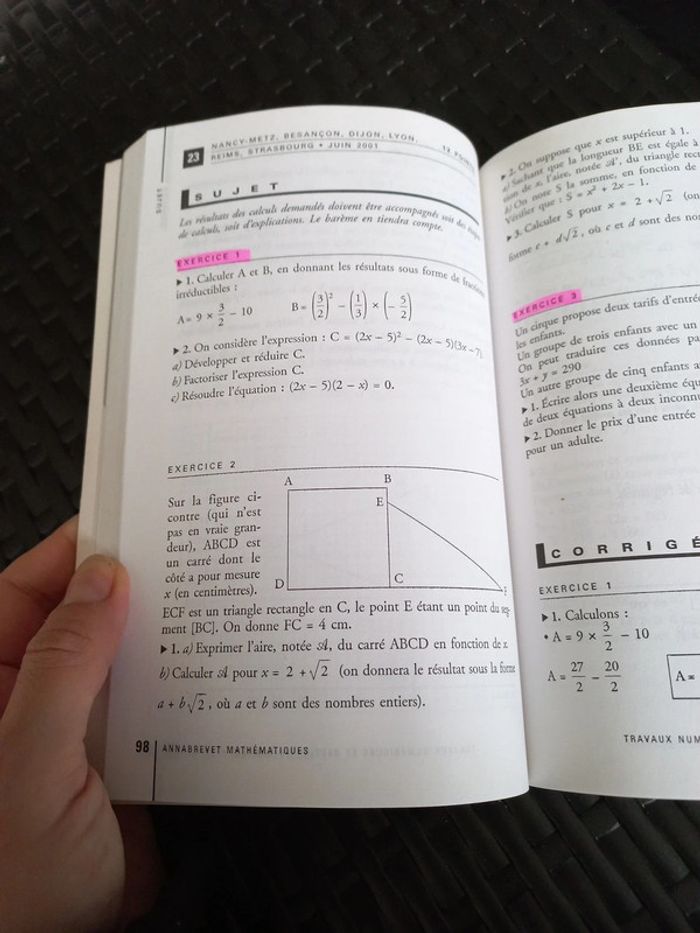 23
NANCY-METZ, BESANÇON, DIJON, LYON,
REIMS, STRASBOURG • JUIN 2001
12 POINTS
SUJET
SUJET
Les résultats des calculs demandés doivent être accompagnés soit des étapes
de calculs, soit d'explications. Le barème en tiendra compte.
EXERCICE 1
▶ 1. Calculer A et B, en donnant les résultats sous forme de fractions
irréductibles :
A = 9 × 3/2 − 10 B = (3/2)² − (1/3) × (− 5/2)
▶ 2. On considère l'expression : C = (2x − 5)² − (2x − 5)(3x − 7).
a) Développer et réduire C.
b) Factoriser l'expression C.
c) Résoudre l'équation : (2x − 5)(2 − x) = 0.
EXERCICE 2
Sur la figure ci-
contre (qui n'est
pas en vraie gran-
deur), ABCD est
un carré dont le
côté a pour mesure
x (en centimètres).
A B
E
D C F
ECF est un triangle rectangle en C, le point E étant un point du seg-
ment [BC]. On donne FC = 4 cm.
▶ 1. a) Exprimer l'aire, notée 𝒜, du carré ABCD en fonction de x
b) Calculer 𝒜 pour x = 2 + √2 (on donnera le résultat sous la forme
a + b√2, où a et b sont des nombres entiers).
98 ANNABREVET MATHÉMATIQUES
▶ 2. On suppose que x est supérieur à 1.
a) Sachant que la longueur BE est égale à
sion de x, l'aire, notée 𝒜', du triangle rect
b) On note S la somme, en fonction de
Vérifier que : S = x² + 2x − 1.
▶ 3. Calculer S pour x = 2 + √2 (on
forme c + d√2, où c et d sont des nom
EXERCICE 3
Un cirque propose deux tarifs d'entrée
les enfants.
Un groupe de trois enfants avec un
On peut traduire ces données pa
3x + y = 290
Un autre groupe de cinq enfants a
▶ 1. Écrire alors une deuxième équ
de deux équations à deux inconnu
▶ 2. Donner le prix d'une entrée
pour un adulte.
CORRIGÉ
EXERCICE 1
▶ 1. Calculons :
• A = 9 × 3/2 − 10
A = 27/2 − 20/2 A =
TRAVAUX NUM